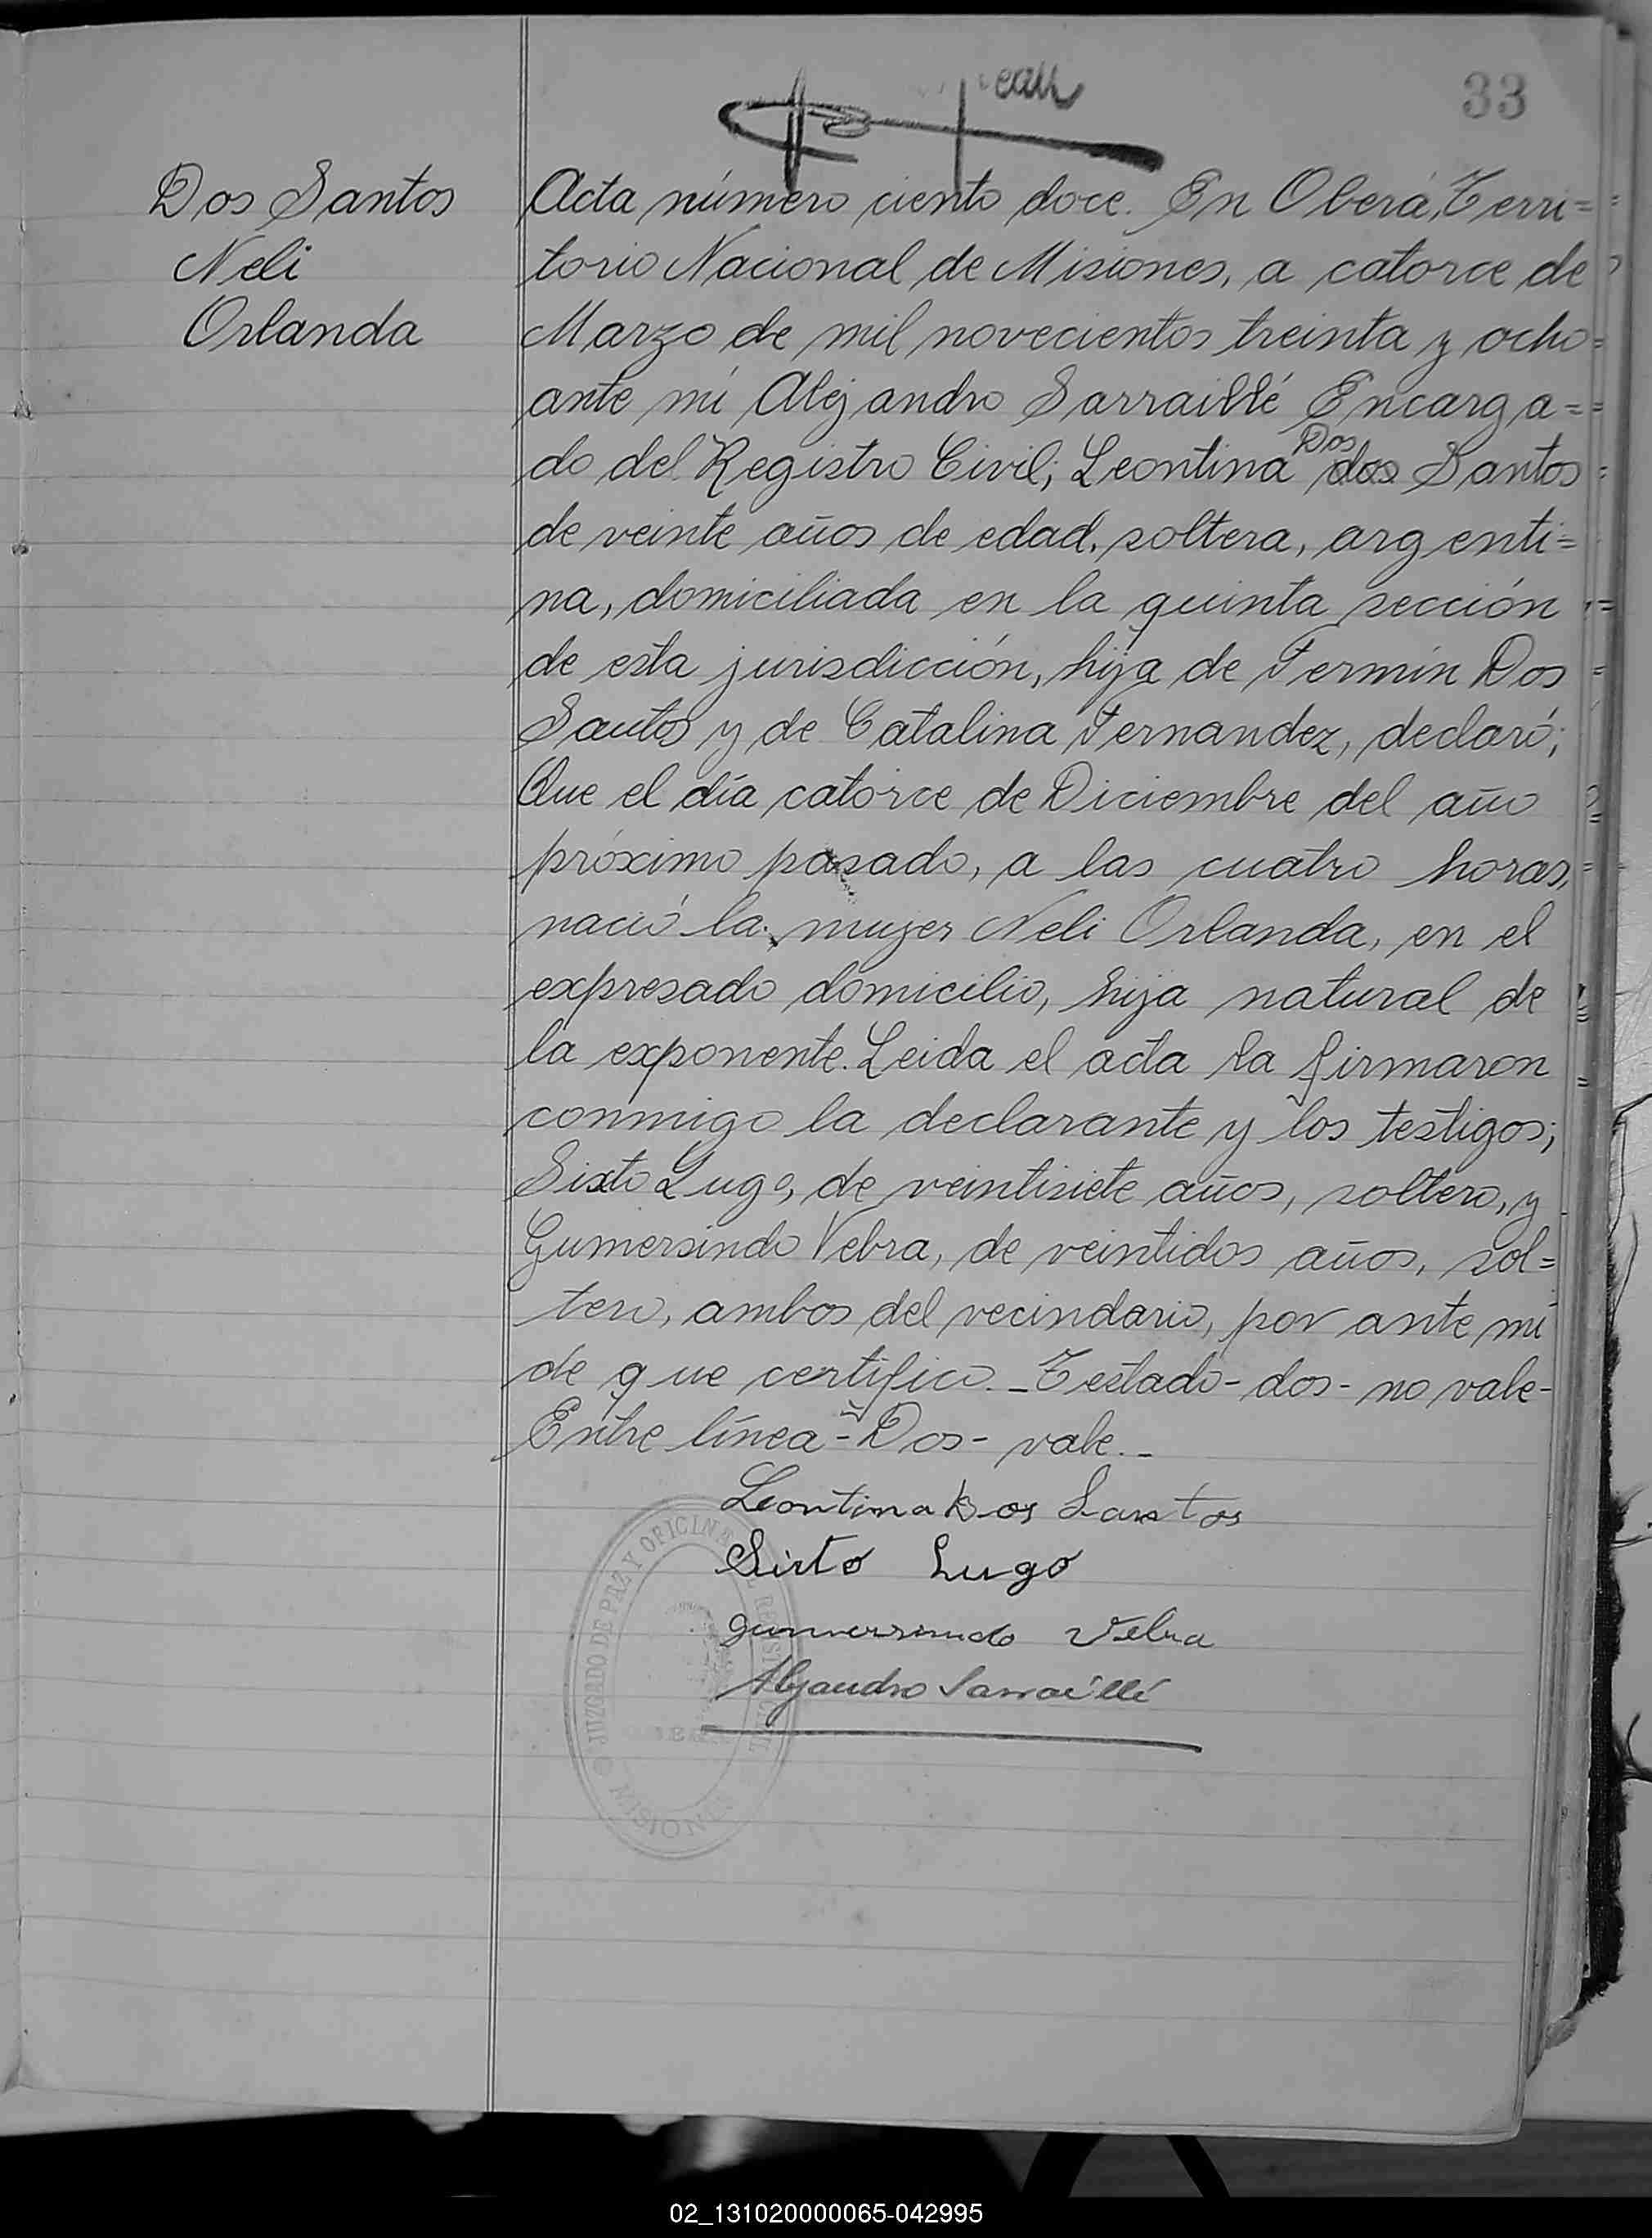 33
Dos Santos
Neli
Orlanda
Acta número ciento doce. En Oberá, Terri=
torio Nacional de Misiones, a catorce de
Marzo de mil novecientos treinta y ocho
ante mí Alejandro Sarraillé Encarga=
do del Registro Civil; Leontina Dos dos Santos
de veinte años de edad, soltera, argenti=
na, domiciliada en la quinta sección
de esta jurisdicción, hija de Fermín Dos
Santos y de Catalina Fernandez, declaró;
Que el día catorce de Diciembre del año
próximo pasado, a las cuatro horas,
nació la mujer Neli Orlanda, en el
expresado domicilio, hija natural de
la exponente. Leida el acta la firmaron
conmigo la declarante y los testigos;
Sixto Lugo, de veintisiete años, soltero, y
Gumersindo Vebra, de veintidos años, sol=
tero, ambos del vecindario, por ante mí
de que certifico._Testado-dos-no vale-
Entre línea-Dos-vale._
Leontina Dos Santos
Sixto Lugo
Gumersindo Vebra
Alejandro Sarraillé
JUZGADO DE PAZ Y OFICINA
MISIONES
02_131020000065-042995